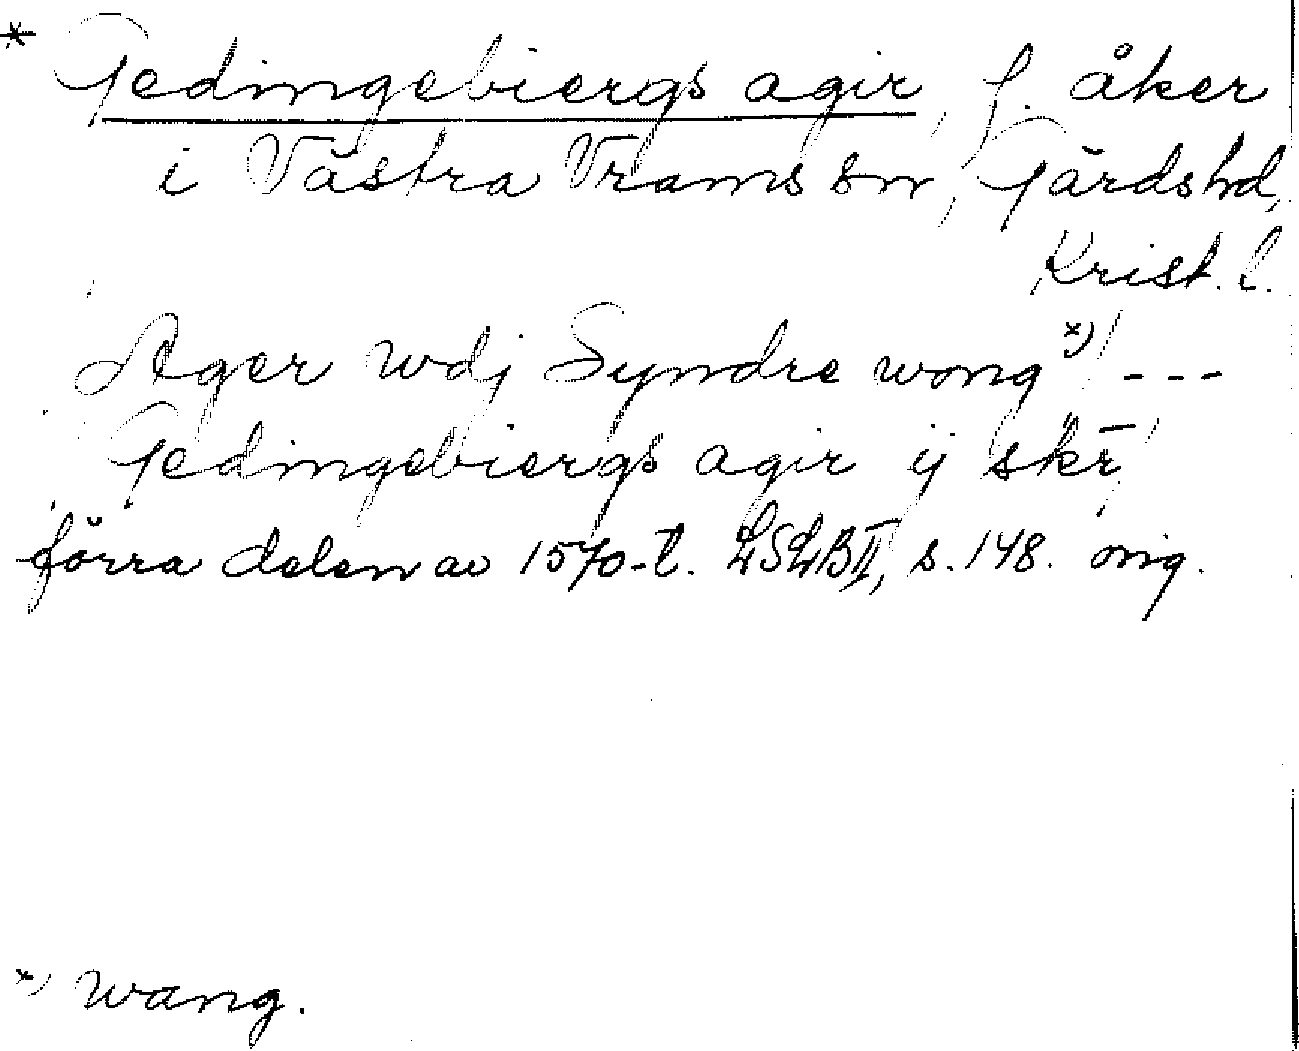 * Gedingebiergs agir, f. åker
i Västra Vrams sn, Gärds hd,
Krist. l.
Ager wdj Syndre wong *) / - - -
Gedingebiergs agir ij skr̄ /
förra delen av 1570-t. LSLB II, s. 148. orig.
*) wang.